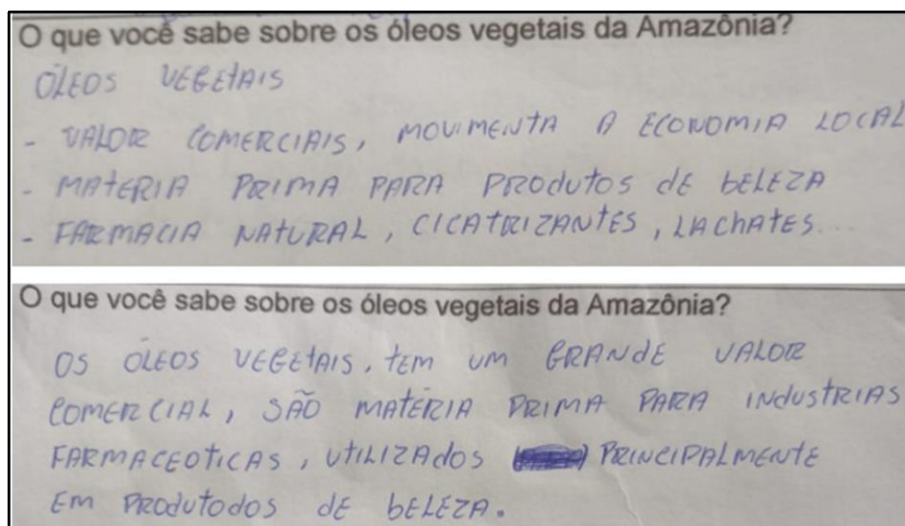 O que você sabe sobre os óleos vegetais da Amazônia?
ÓLEOS VEGETAIS
- VALOR COMERCIAIS, MOVIMENTA A ECONOMIA LOCAL
- MATERIA PRIMA PARA PRODUTOS DE BELEZA
- FARMACIA NATURAL, CICATRIZANTES, LACHATES...
O que você sabe sobre os óleos vegetais da Amazônia?
OS ÓLEOS VEGETAIS, TEM UM GRANDE VALOR
COMERCIAL, SÃO MATÉRIA PRIMA PARA INDUSTRIAS
FARMACEOTICAS, UTILIZADOS PRINCIPALMENTE
EM PRODUTODOS DE BELEZA.